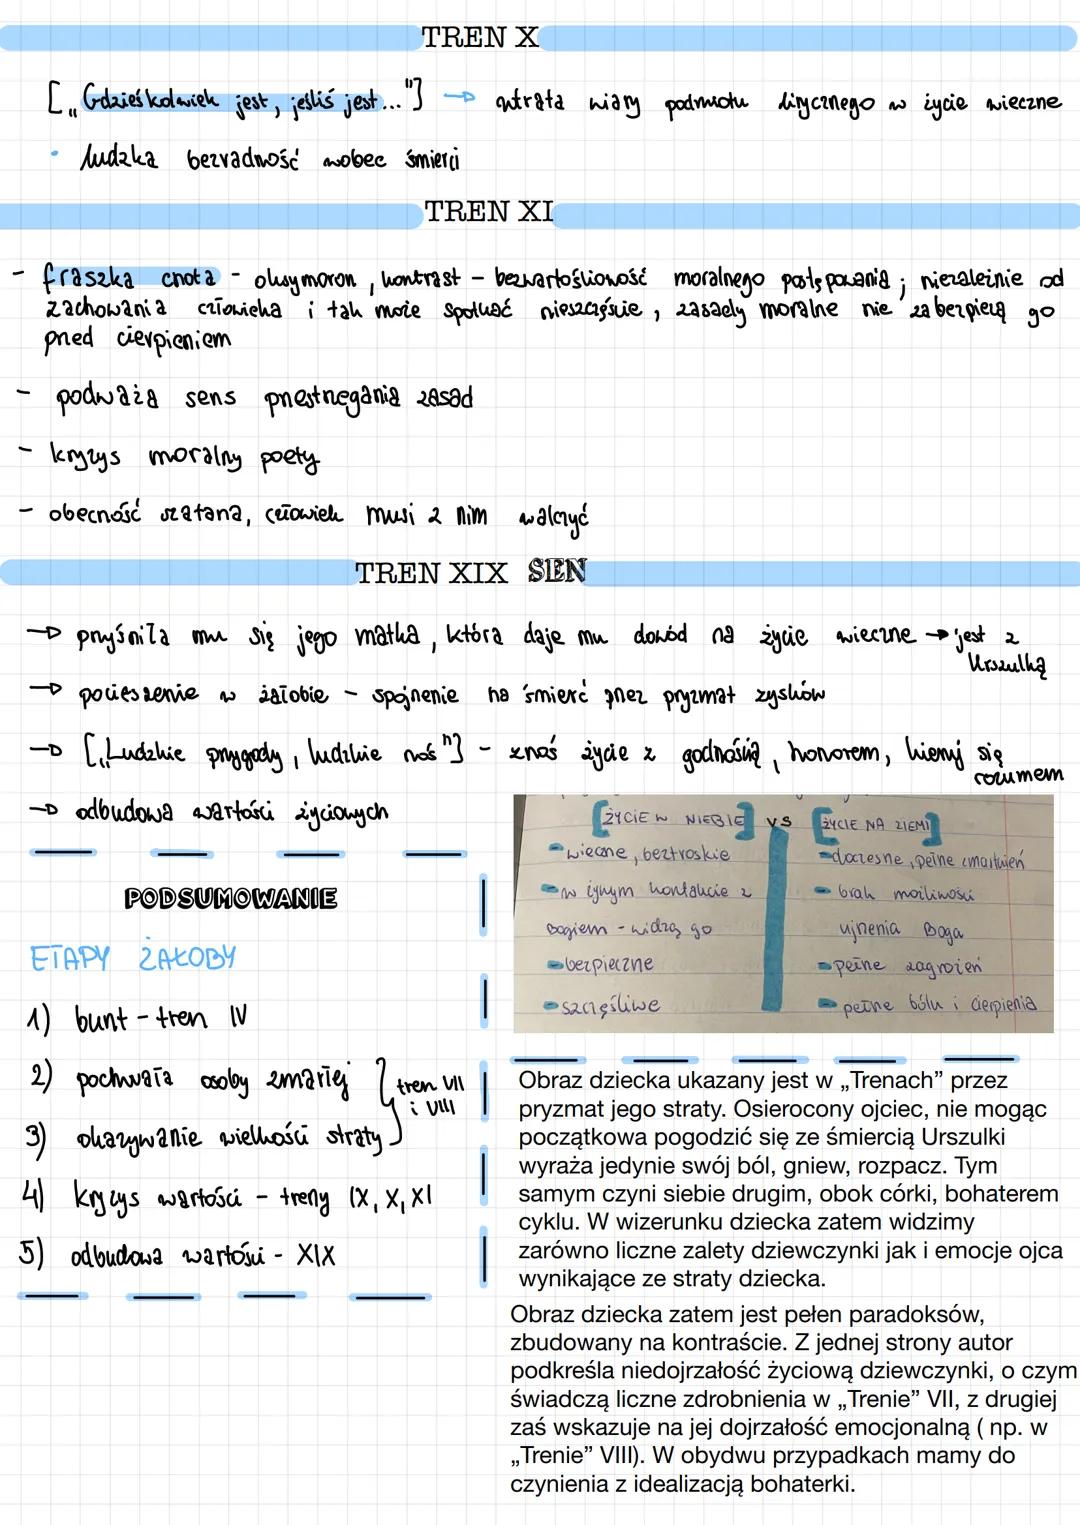 TREN X
[„Gdzieśkolwiek jest, jeśliś jest..."] → utrata wiary podmiotu lirycznego w życie wieczne
• ludzka bezradność wobec śmierci
TREN XI
- fraszka cnota - oksymoron, kontrast - bezwartościowość moralnego postępowania; niezależnie od
zachowania człowieka i tak może spotkać nieszczęście, zasady moralne nie zabezpieczą go
przed cierpieniem
- podważa sens przestrzegania zasad
- kryzys moralny poety
- obecność szatana, człowiek musi z nim walczyć
TREN XIX SEN
→ przyśniła mu się jego matka, która daje mu dowód na życie wieczne → jest z
Urszulką
→ pocieszenie w żałobie - spojrzenie na śmierć przez pryzmat zysków
→ [„Ludzkie przygody, ludzkie noś"] - znoś życie z godnością, honorem, kieruj się
rozumem
→ odbudowa wartości życiowych
[ŻYCIE W NIEBIE] VS [ŻYCIE NA ZIEMI]
- wieczne, beztroskie
- w żywym kontakcie z
Bogiem - widzą go
- bezpieczne
- szczęśliwe
- doczesne, pełne zmartwień
- brak możliwości
ujrzenia Boga
- pełne zagrożeń
- pełne bólu i cierpienia
PODSUMOWANIE
ETAPY ŻAŁOBY
1) bunt - tren IV
2) pochwała osoby zmarłej
3) okazywanie wielkości straty
tren VII
i VIII
4) kryzys wartości - treny IX, X, XI
5) odbudowa wartości - XIX
Obraz dziecka ukazany jest w „Trenach” przez
pryzmat jego straty. Osierocony ojciec, nie mogąc
początkowa pogodzić się ze śmiercią Urszulki
wyraża jedynie swój ból, gniew, rozpacz. Tym
samym czyni siebie drugim, obok córki, bohaterem
cyklu. W wizerunku dziecka zatem widzimy
zarówno liczne zalety dziewczynki jak i emocje ojca
wynikające ze straty dziecka.
Obraz dziecka zatem jest pełen paradoksów,
zbudowany na kontraście. Z jednej strony autor
podkreśla niedojrzałość życiową dziewczynki, o czym
świadczą liczne zdrobnienia w „Trenie” VII, z drugiej
zaś wskazuje na jej dojrzałość emocjonalną ( np. w
„Trenie” VIII). W obydwu przypadkach mamy do
czynienia z idealizacją bohaterki.